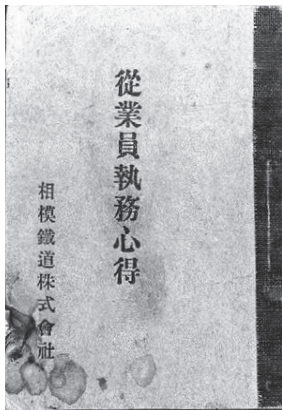 從業員執務心得
相模鐵道株式會社